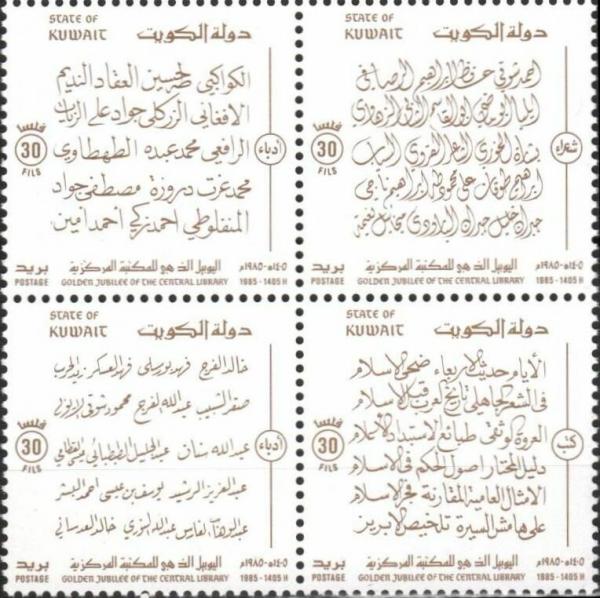 STATE OF
KUWAIT
دولة الكويت
الكواكبي طه حسين العقاد النديم
الافغاني الزركلي جواد علي الزيات
الرافعي محمد عبده الطهطاوي
محمد عزت دروزة مصطفى جواد
المنفلوطي احمد زكي احمد امين
أدباء
فلسا
30
FILS
بريد
POSTAGE
اليوبيل الذهبي للمكتبة المركزية
GOLDEN JUBILEE OF THE CENTRAL LIBRARY
١٤٠٥هـ-١٩٨٥م
1985-1405 H
STATE OF
KUWAIT
دولة الكويت
احمد شوقي حافظ ابراهيم الرصافي
ايليا ابو ماضي ابو القاسم الشابي الزهاوي
بشارة الخوري الشاعر القروي السياب
ابراهيم طوقان علي محمود طه ابراهيم ناجي
جبران خليل جبران البارودي ميخائيل نعيمة
شعراء
فلسا
30
FILS
بريد
POSTAGE
اليوبيل الذهبي للمكتبة المركزية
GOLDEN JUBILEE OF THE CENTRAL LIBRARY
١٤٠٥هـ-١٩٨٥م
1985-1405 H
STATE OF
KUWAIT
دولة الكويت
خالد الفرج فهد بورسلي فهد العسكر زيد الحرب
صقر الشبيب عبدالله الفرج محمود شوقي الايوبي
عبدالله سنان عبدالجليل الطبطبائي
عبدالعزيز الرشيد يوسف بن عيسى احمد البشر
عبدالوهاب الفارس عبدالله النوري خالد العدساني
أدباء
فلسا
30
FILS
بريد
POSTAGE
اليوبيل الذهبي للمكتبة المركزية
GOLDEN JUBILEE OF THE CENTRAL LIBRARY
١٤٠٥هـ-١٩٨٥م
1985-1405 H
STATE OF
KUWAIT
دولة الكويت
الأيام حديث الاربعاء ضحى الاسلام
في الشعر الجاهلي تاريخ العرب قبل الاسلام
العروة الوثقى طبائع الاستبداد الاعلام
دليل المحتار اصول الحكم في الاسلام
الامثال العامية المقارنة فجر الاسلام
على هامش السيرة تلخيص الابريز
كتب
فلسا
30
FILS
بريد
POSTAGE
اليوبيل الذهبي للمكتبة المركزية
GOLDEN JUBILEE OF THE CENTRAL LIBRARY
١٤٠٥هـ-١٩٨٥م
1985-1405 H